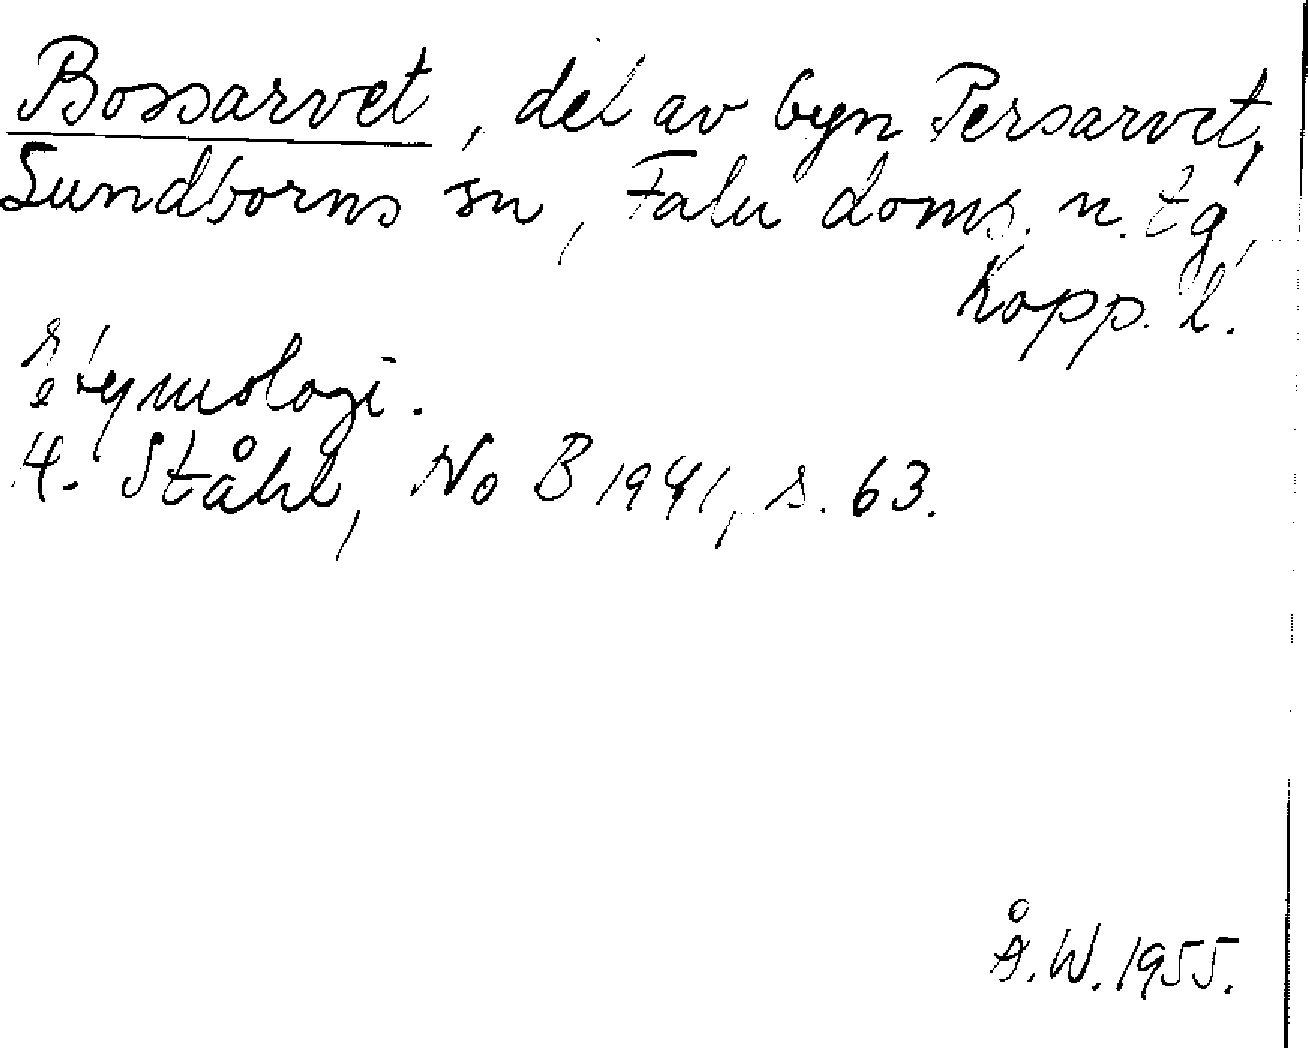 Bossarvet, del av byn Persarvet,
Sundborns sn, Falu doms. n. tg,
Kopp. l.
Etymologi.
H. Ståhl, No B 1941, s. 63.
Å. W. 1955.